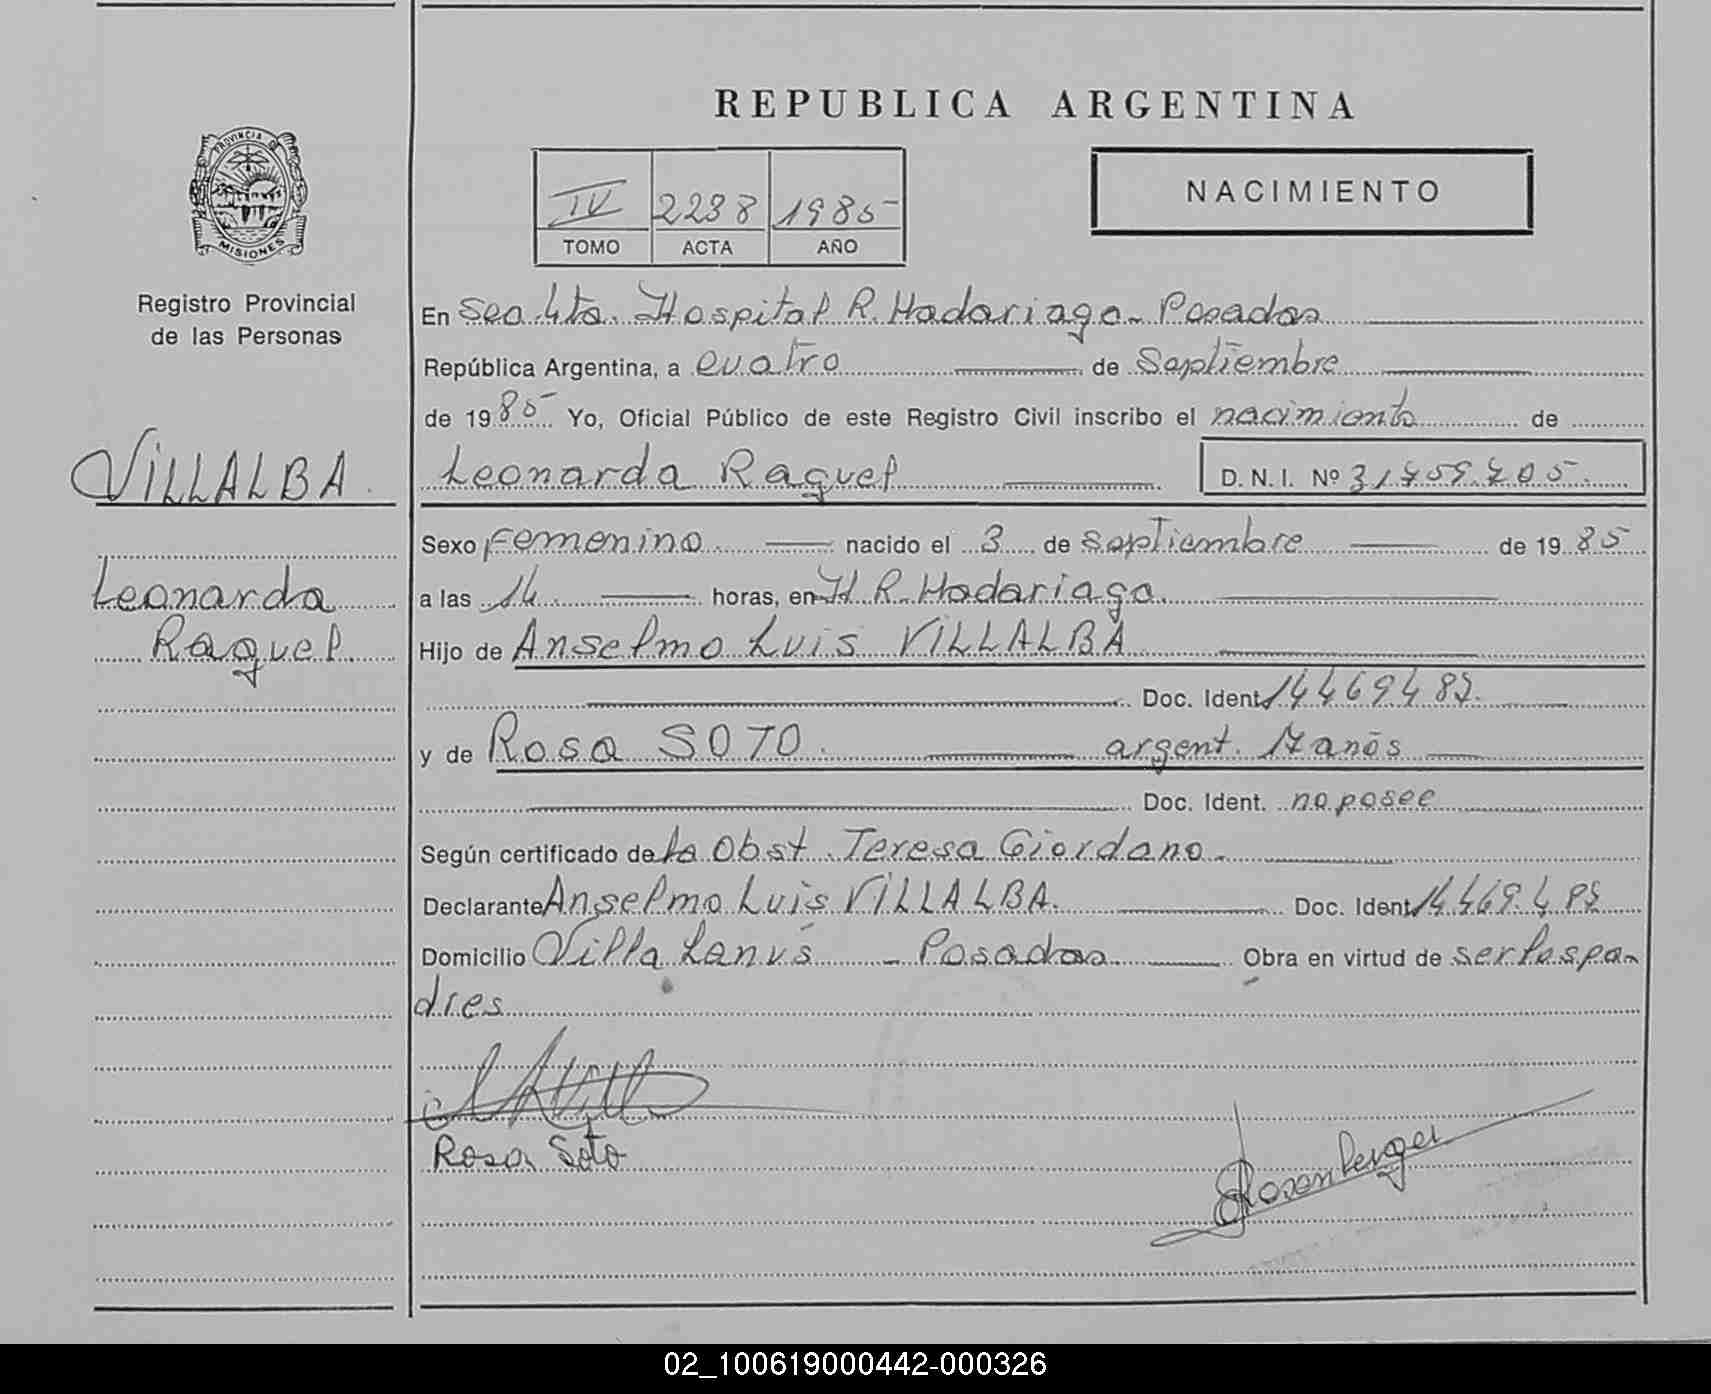 REPUBLICA ARGENTINA
PROVINCIA DE
MISIONES
Registro Provincial
de las Personas
IV 2238 1985
TOMO ACTA AÑO
NACIMIENTO
En Sec. 4ta. Hospital R. Madariaga - Posadas
República Argentina, a cuatro de Septiembre
de 1985 Yo, Oficial Público de este Registro Civil inscribo el nacimiento de
VILLALBA
Leonarda Raquel
D. N. I. Nº 31.759.705
Sexo Femenino nacido el 3 de Septiembre de 1985
Leonarda
Raquel
a las 14 horas, en H R. Madariaga.
Hijo de Anselmo Luis VILLALBA
Doc. Ident. 14469482.
y de Rosa SOTO. argent. 17 años
Doc. Ident. no posee
Según certificado de la Obst. Teresa Giordano.
Declarante Anselmo Luis VILLALBA. Doc. Ident. 14.469.482
Domicilio Villa Lanús - Posadas Obra en virtud de ser los pa-
dres
Rosa Soto
Rosenberger
02_100619000442-000326